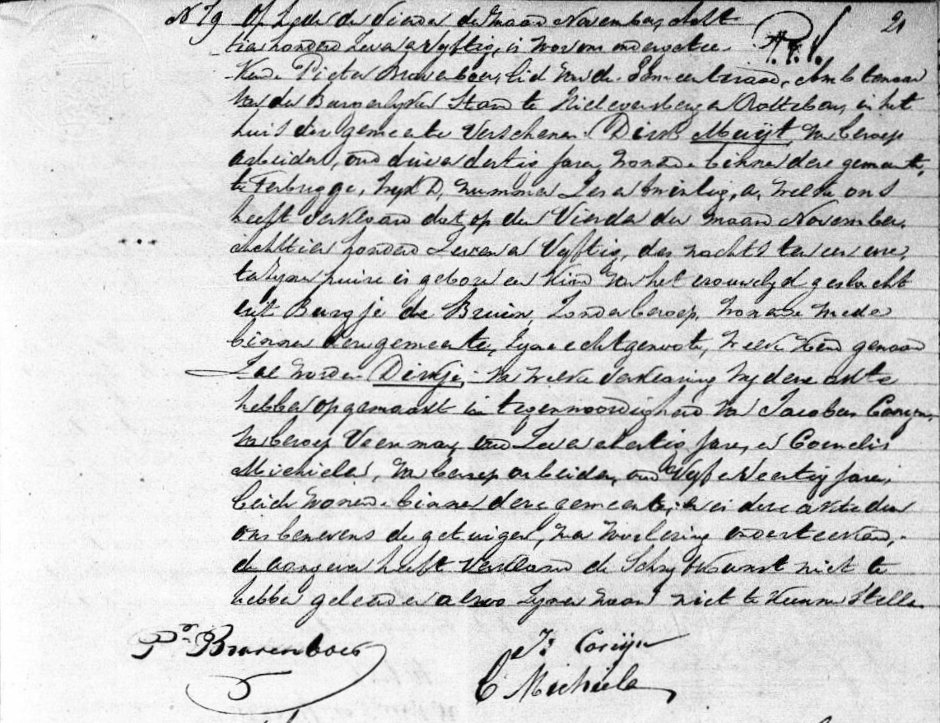 No 79 Op heden de Vierden der maand November, acht
tienhonderd zeven en vyftig, is voor ons ondergetee
kende Pieter Bravenboer, lid van de Gemeenteraad, Ambtenaar
van den Burgerlyken Stand te Hillegersberg en Rotteban, in het
huis der gemeente Verschenen Dirk Muijt van beroep
arbeider, oud drie en dertig jaren, wonende binnen deze gemeente,
te Terbregge, wyk D, nummer zeven twintig, a, welke ons
heeft verklaard dat op den Vierden der maand November
achttien honderd zeven en Vyftig, des nachts ten een ure,
ten zynen huize is geboren een Kind van het vrouwelyk geslacht
uit Burgje de Bruin, zonder beroep, wonende mede
binnen deze gemeente, zyne echtgenoote, welk Kind genaamd
zal worden Dirkje. Van welke verklaring wy deze akte
hebben opgemaakt in tegenwoordigheid van Jacobus Corijn,
van beroep Veenman, oud zeven en dertig jaren, en Cornelis
Michielen, van beroep arbeider, oud Vyf en Veertig jaren,
beide wonende binnen deze gemeente, en is deze akte door
ons benevens de getuigen, na voorlezing onderteekend,
de aangever heeft verklaard de Schryfkunst niet te
hebben geleerd en alzoo zynen naam niet te kunnen Stellen
Pr Bravenboer
Js Corijn
C Michielen